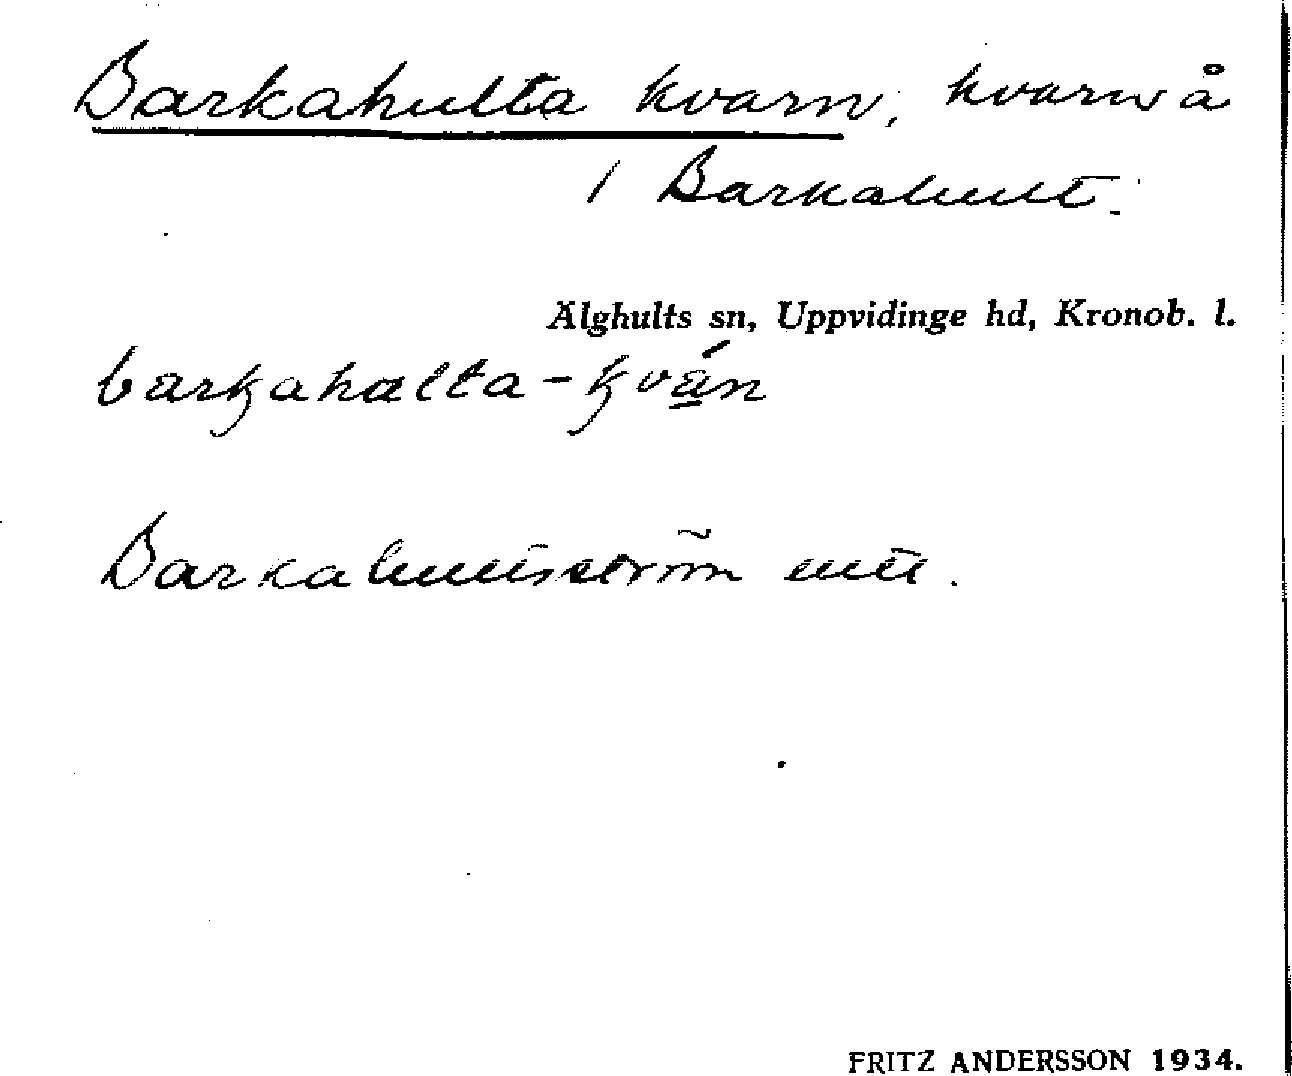 Barkahulta kvarn, kvarn å
i Barkahult.
Älghults sn, Uppvidinge hd, Kronob. l.
barkahalta-kván
Barkahultsström
FRITZ ANDERSSON 1934.